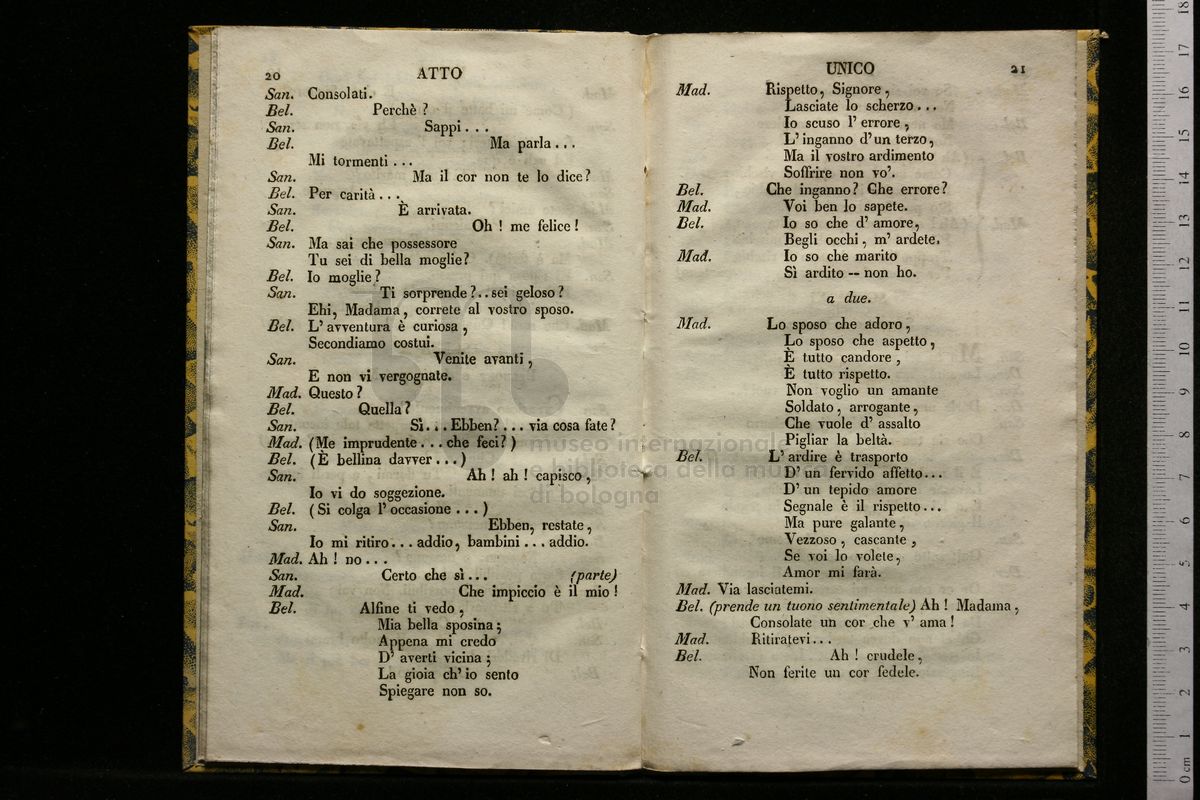 20 ATTO
San. Consolati.
Bel. Perchè ?
San. Sappi . . .
Bel. Ma parla . . .
Mi tormenti . . .
San. Ma il cor non te lo dice ?
Bel. Per carità . . .
San. È arrivata.
Bel. Oh ! me felice !
San. Ma sai che possessore
Tu sei di bella moglie?
Bel. Io moglie ?
San. Ti sorprende ? . . sei geloso ?
Ehi, Madama, correte al vostro sposo.
Bel. L' avventura è curiosa ,
Secondiamo costui.
San. Venite avanti ,
E non vi vergognate.
Mad. Questo ?
Bel. Quella ?
San. Sì . . . Ebben? . . . via cosa fate ?
Mad. (Me imprudente . . . che feci? )
Bel. (È bellina davver . . . )
San. Ah ! ah ! capisco ,
Io vi do soggezione.
Bel. (Si colga l' occasione . . . )
San. Ebben, restate ,
Io mi ritiro . . . addio, bambini . . . addio.
Mad. Ah ! no . . .
San. Certo che sì . . . (parte)
Mad. Che impiccio è il mio !
Bel. Alfine ti vedo ,
Mia bella sposina ;
Appena mi credo
D' averti vicina ;
La gioia ch' io sento
Spiegare non so.
UNICO 21
Mad. Rispetto, Signore ,
Lasciate lo scherzo . . .
Io scuso l' errore ,
L' inganno d' un terzo,
Ma il vostro ardimento
Soffrire non vo'.
Bel. Che inganno? Che errore?
Mad. Voi ben lo sapete.
Bel. Io so che d' amore,
Begli occhi , m' ardete.
Mad. Io so che marito
Sì ardito -- non ho.
a due.
Mad. Lo sposo che adoro ,
Lo sposo che aspetto ,
È tutto candore ,
È tutto rispetto.
Non voglio un amante
Soldato , arrogante ,
Che vuole d' assalto
Pigliar la beltà.
Bel. L' ardire è trasporto
D' un fervido affetto . . .
D' un tepido amore
Segnale è il rispetto . . .
Ma pure galante ,
Vezzoso , cascante ,
Se voi lo volete ,
Amor mi farà.
Mad. Via lasciatemi.
Bel. (prende un tuono sentimentale) Ah ! Madama ,
Consolate un cor che v' ama !
Mad. Ritiratevi . . .
Bel. Ah ! crudele ,
Non ferite un cor fedele.
museo internazionale
e biblioteca della musica
di bologna
0 cm 1 2 3 4 5 6 7 8 9 10 11 12 13 14 15 16 17 18